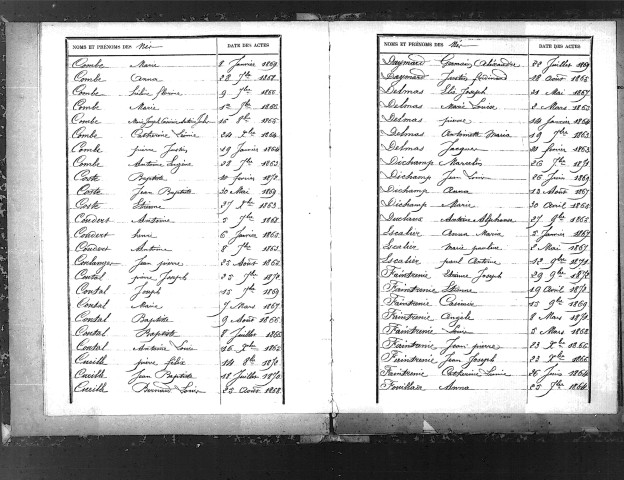 NOMS ET PRÉNOMS DES Nés DATE DES ACTES
Combe Marie 8 Janvier 1869
Combe Anna 28 7bre 1868
Combe 9 7bre 1866
Combe Marie 12 9bre 1866
Combe 15 8bre 1865
Combe Catherine Louise 24 Xbre 1864
Combe pierre Justin 19 Janvier 1864
Combe Antoine Eugène 22 7bre 1863
Coste Baptiste 10 février 1872
Coste Jean Baptiste 30 Mai 1869
Coste Etienne 27 8bre 1863
Coudert Antoine 5 7bre 1868
Coudert 6 Janvier 1865
Coudert Antoine 8 7bre 1863
Coulanges Jean pierre 25 Août 1862
Coutal pierre Joseph 23 7bre 1872
Coutal Joseph 15 7bre 1869
Coutal Marie 7 Mars 1867
Coutal Baptiste 9 Août 1866
Coutal Baptiste 8 Juillet 1866
Coutal Antoine Louis 16 Xbre 1862
Cueille pierre Félix 14 8bre 1870
Cueille Jean Baptiste 18 Juillet 1870
Cueille Bernard Louis 23 Août 1868
NOMS ET PRÉNOMS DES Nés DATE DES ACTES
Daymard Germain Alexandre 20 Juillet 1869
Daymard Justin 18 Août 1865
Delmas Elie Joseph 21 Mai 1867
Delmas Marie Louise 2 Mars 1865
Delmas pierre 14 Janvier 1864
Delmas Antoinette Maria 19 7bre 1863
Delmas Jacques 10 février 1863
Dischamp Marcelin 26 7bre 1871
Dischamp Jean Louis 26 Juin 1869
Dischamp Anna 13 Août 1867
Dischamp Marie 30 Avril 1865
Duclaux Antoine Alphonse 27 9bre 1865
Escalier Anna Marie 5 Janvier 1867
Escalier Marie pauline 2 Mai 1867
Escalier paul Antoine 12 9bre 1871
Faintrenie Etienne Joseph 29 9bre 1872
Faintrenie Etienne 19 Avril 1872
Faintrenie Casimir 15 9bre 1869
Faintrenie Angèle 8 Mars 1871
Faintrenie Louis 5 Mars 1868
Faintrenie Jean pierre 23 Xbre 1866
Faintrenie Jean Joseph 22 Xbre 1866
Faintrenie Catherine Louise 26 Juin 1864
Fouillade Anna 23 7bre 1864